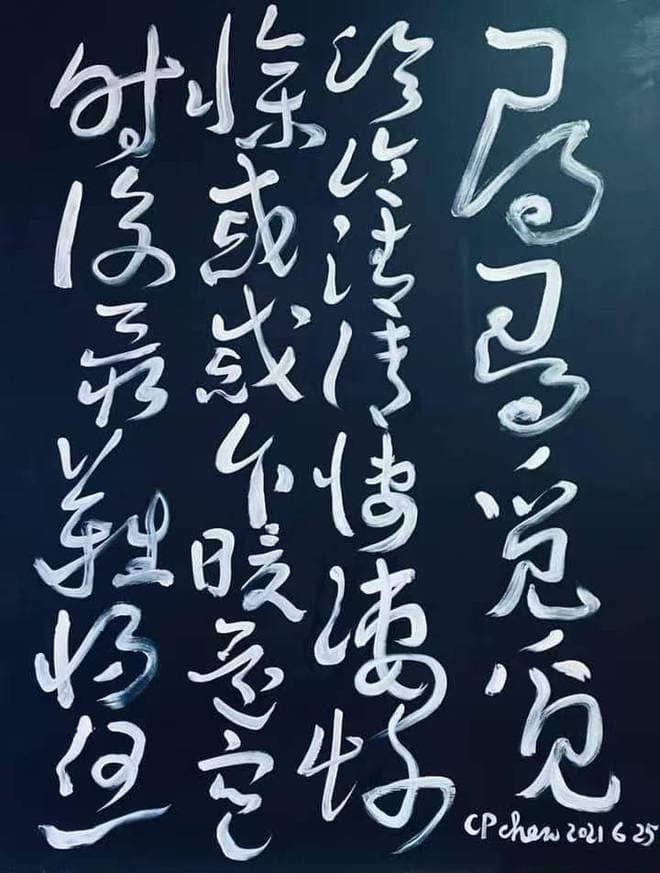 尋尋覓覓
冷冷清清悽淒慘
慘戚戚乍暖還寒
時候最難將息
CP chen 2021 6 25